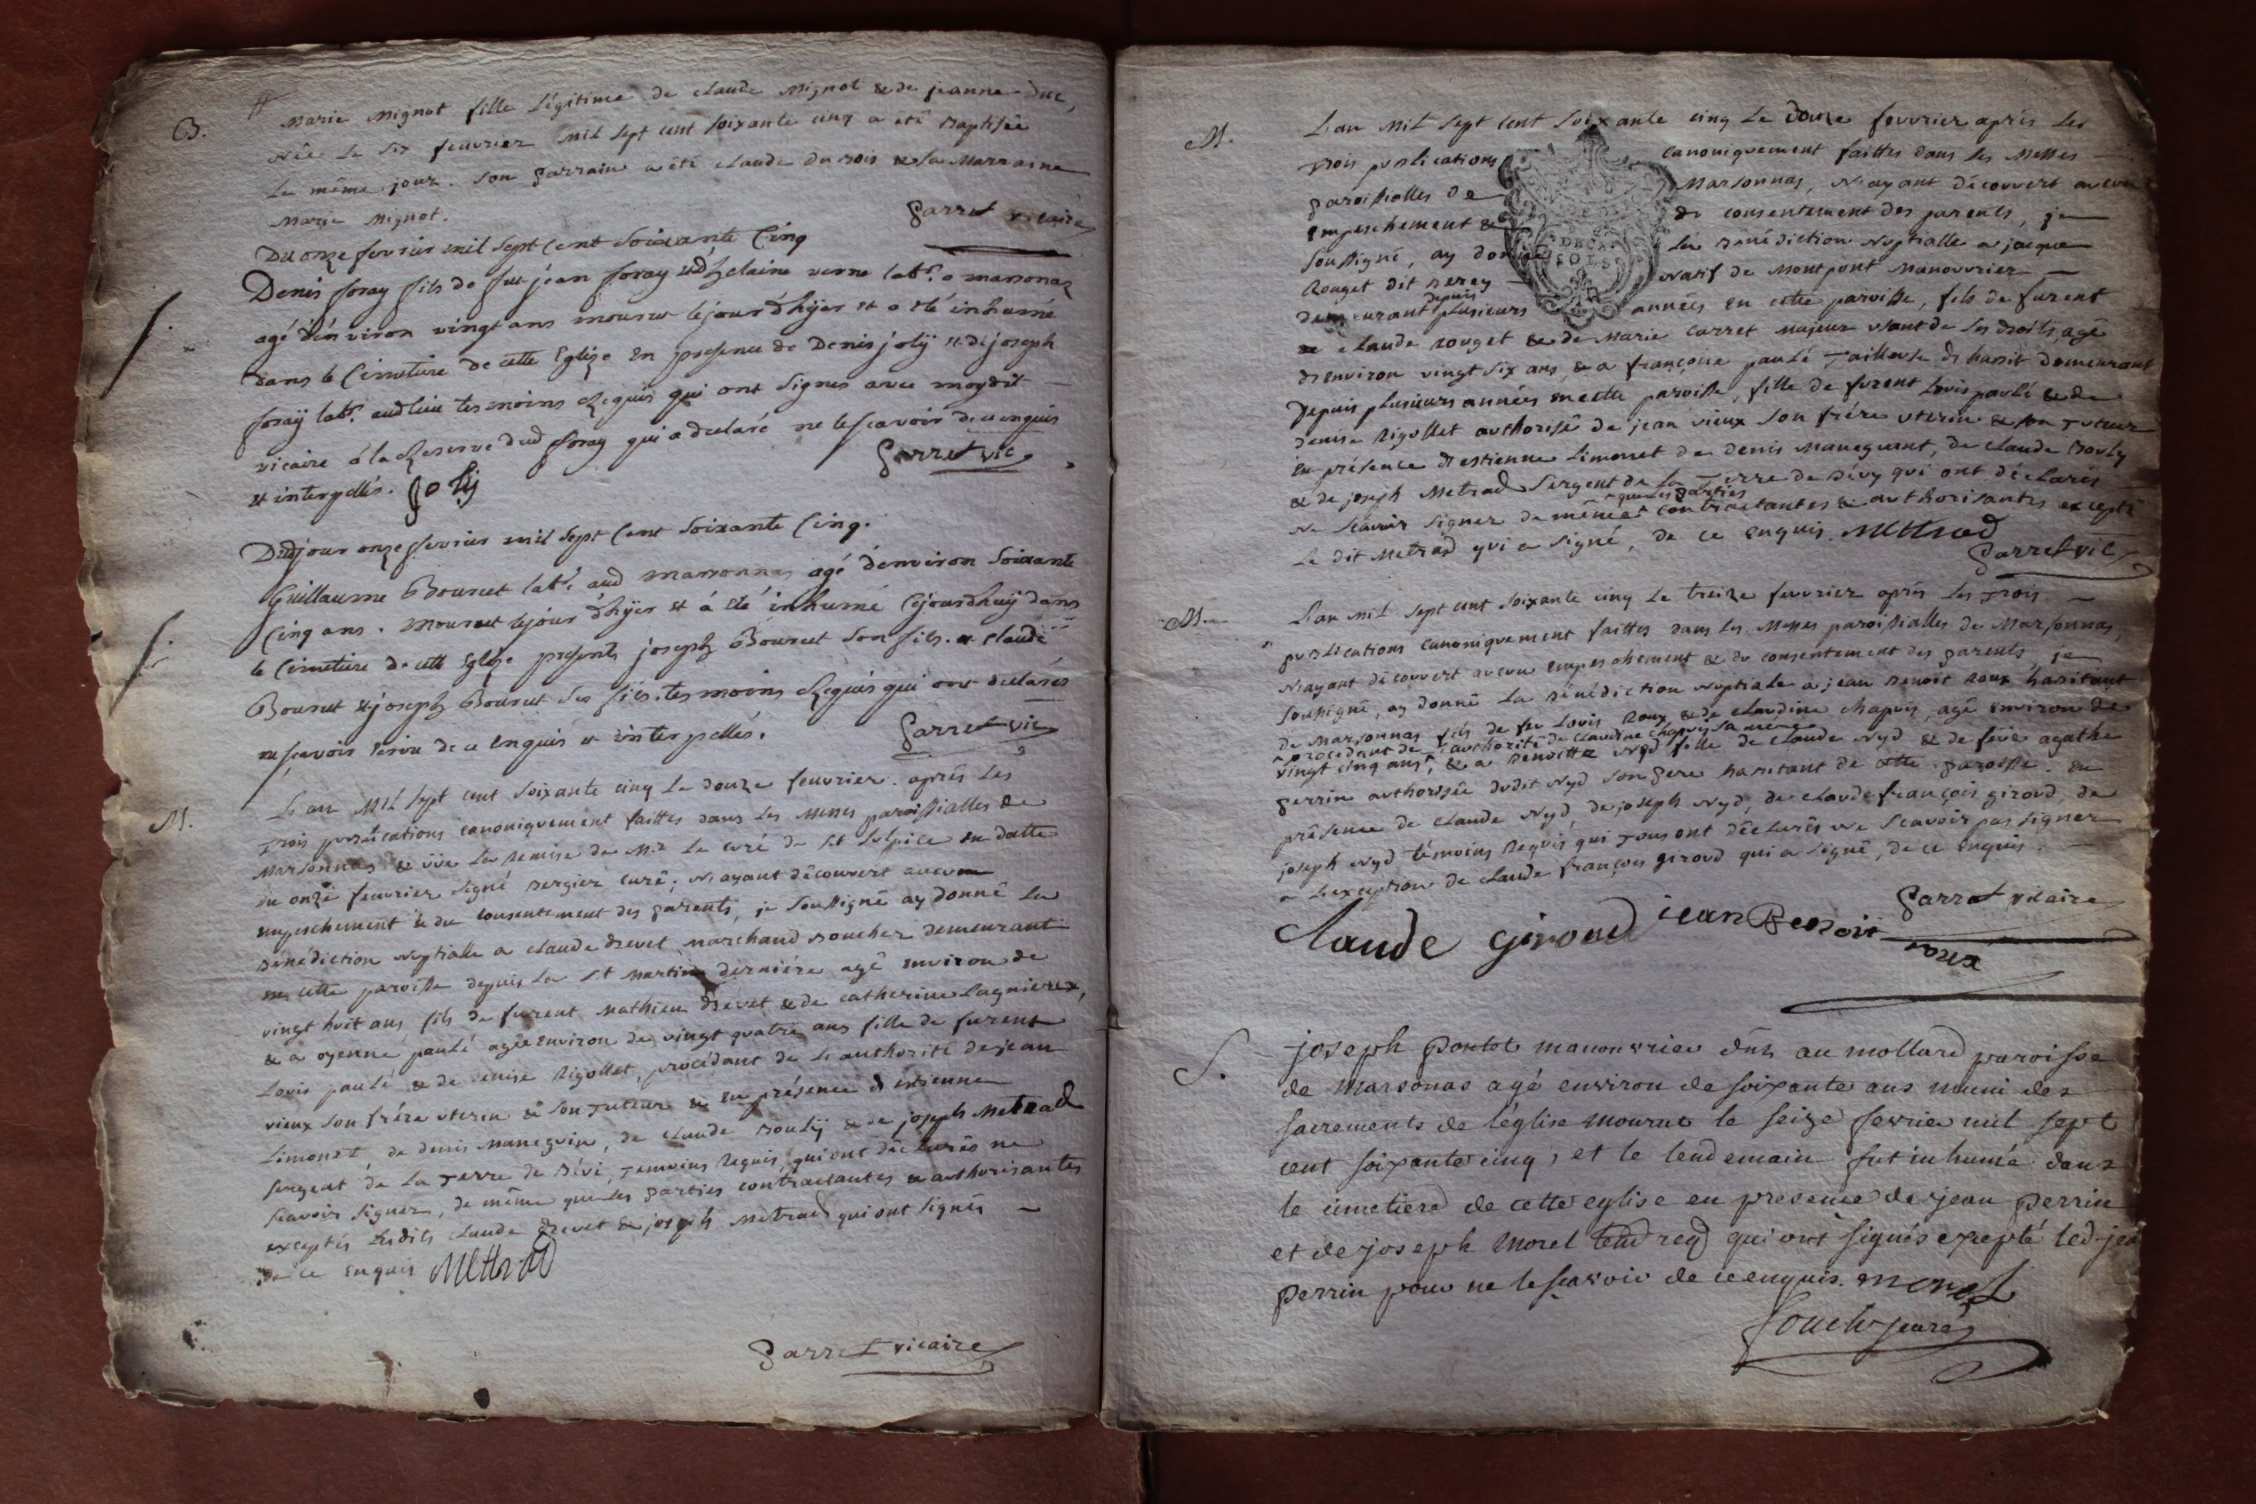 B.
Marie Mignot fille Légitime de claude Mignot & de jeanne duc,
Née le six feuvrier mil sept cent soixante cinq a été Baptisée
Le même jour. Son Parrain a été claude du Bois & la Marraine
Marie Mignot.
Parret vicaire
Du onze fevrier mil sept Cent Soixante Cinq
Denis foray fils de feu jean foray labr. a marsonaz
agé d'énviron vingt ans mourut le jour d'hyer et a été inhumé
dans le Cimetiere de cette Eglize En presence de Denis joly et de joseph
foraÿ labr. audlieu tesmoins Requis qui ont Signés avec moydit
vicaire á la Reserve dud foray qui a declaré ne le scavoir de ce enquis
et interpellés. Joly
Parret vic
Dudjour onze fevrier mil sept Cent Soixante Cinq.
Guillaume Bouruet labr. aud marsonnas agé d'environ Soixante
Cinq ans. mourut le jour d'hÿer et á été inhumé Cejourdhuÿ dans
le Cimetiere de cette Eglize presents joseph Bouruet Son fils. et claude
Bouruet et joseph Bouruet Ses fils. tesmoins Requis qui ont declarés
ne scavoir Signer de ce Enquis et interpellés.
Parret vic
M.
L'an Mil Sept cent Soixante cinq Le douze feuvrier. après Les
Trois publications canoniquement faittes dans Les Messes paroissialles de
Marsonnas & vüe La Remise de Mr Le curé de St Sulpice en datte
du onze feuvrier Signé Bergier curé; N'ayant découvert aucun
empeschement & du Consentement des parents, je Soussigné ay donné La
Bénédiction Nuptialle a claude Drevet marchand Boucher demeurant
en cette paroisse depuis La St Martin derniére agé environ de
vingt huit ans fils de furent Mathieu Drevet & de catherine Lagnieux,
& a oyenne paulé agée environ de vingt quatre ans fille de furent
Louis paulé & de denise Rigollet, procédant de L'authorité de jean
vieux Son frére uterin & Son Tuteur & en présence d'estienne
Limonet de denis Maneguin, de claude Boulÿ & de joseph Metrad
Sergent de La Terre de Bévi, Temoins Requis, qui ont déclarés ne
scavoir Signer, de même que les Parties contractantes & authorisantes
exceptés Lesdits claude Drevet & joseph Metrad qui ont Signés
de ce enquis Metrad
Parret vicaire
M.
L'an Mil Sept cent Soixante cinq Le douze feuvrier après Les
Trois publications canoniquement faittes dans Les Messes
Paroissialles de Marsonnas, N'ayant découvert aucun
Empeschement & du consentement des parents, je
Soussigné, ay donné La Bénédiction Nuptialle a jacque
Rouget dit Natif de Montpont Manouvrier
depuis
demeurant plusieurs années en cette paroisse, fils de furent
claude Rouget & de Marie carret majeur usant de Ses droits, agé
d'environ vingt Six ans, & a françoise paulé Tailleuse d'habit demeurant
Depuis plusieurs années en cette paroisse, fille de furent Louis paulé & de
denise Rigollet authorisée de jean vieux Son frére uterin & son Tuteur
En présence d'estienne Limonet de denis Maneguant, de claude Bouly
& de joseph Metrad Sergent de La Terre de Bévy qui ont déclarés
que les parties
Ne Scavoir Signer de même contractantes & authorisantes excepté
Le dit Metrad qui a Signé, de ce enquis. Metrad
Parret vic
M.
L'an Mil Sept cent Soixante cinq Le treize feuvrier après Les Trois
publications canoniquement faittes dans Les Messes paroissialles de Marsonnas,
N'ayant découvert aucun empeschement & du consentement des parents, je
Soussigné, ay donné La Bénédiction Nuptiale a jean Benoit Roux habitant
de Marsonnas fils de feu Louis Roux, & de claudine chapuis, agé environ de
procédant de L'authorité de claudine chapuis Sa mére
vingt cinq ans, & a Benoitte Nyd fille de claude Nyd & de feüe agathe
Perrin authorisée dudit Nyd Son pere habitant de cette Paroisse. en
présence de claude Nyd, de joseph Nyd, de claude françois giroud, de
joseph Nyd témoins Requis qui Tous ont déclarés Ne Scavoir pas Signer
a L'exception de claude françois giroud qui a Signé, de ce enquis.
Parret vicaire
Claude Giroud jean Benoit
roux
S.
joseph Pontot manouvrier au mollard paroisse
de Marsonas agé environ de soixante ans muni des
sacrements de l'église mourut le seize fevrier mil sept
cent soixante cinq, et le lendemain fut inhumé dans
le cimetiere de cette eglise en presence de jean perrin
et de joseph Morel qui ont signés excepté led jean
perrin pour ne le scavoir de ce enquis. morel